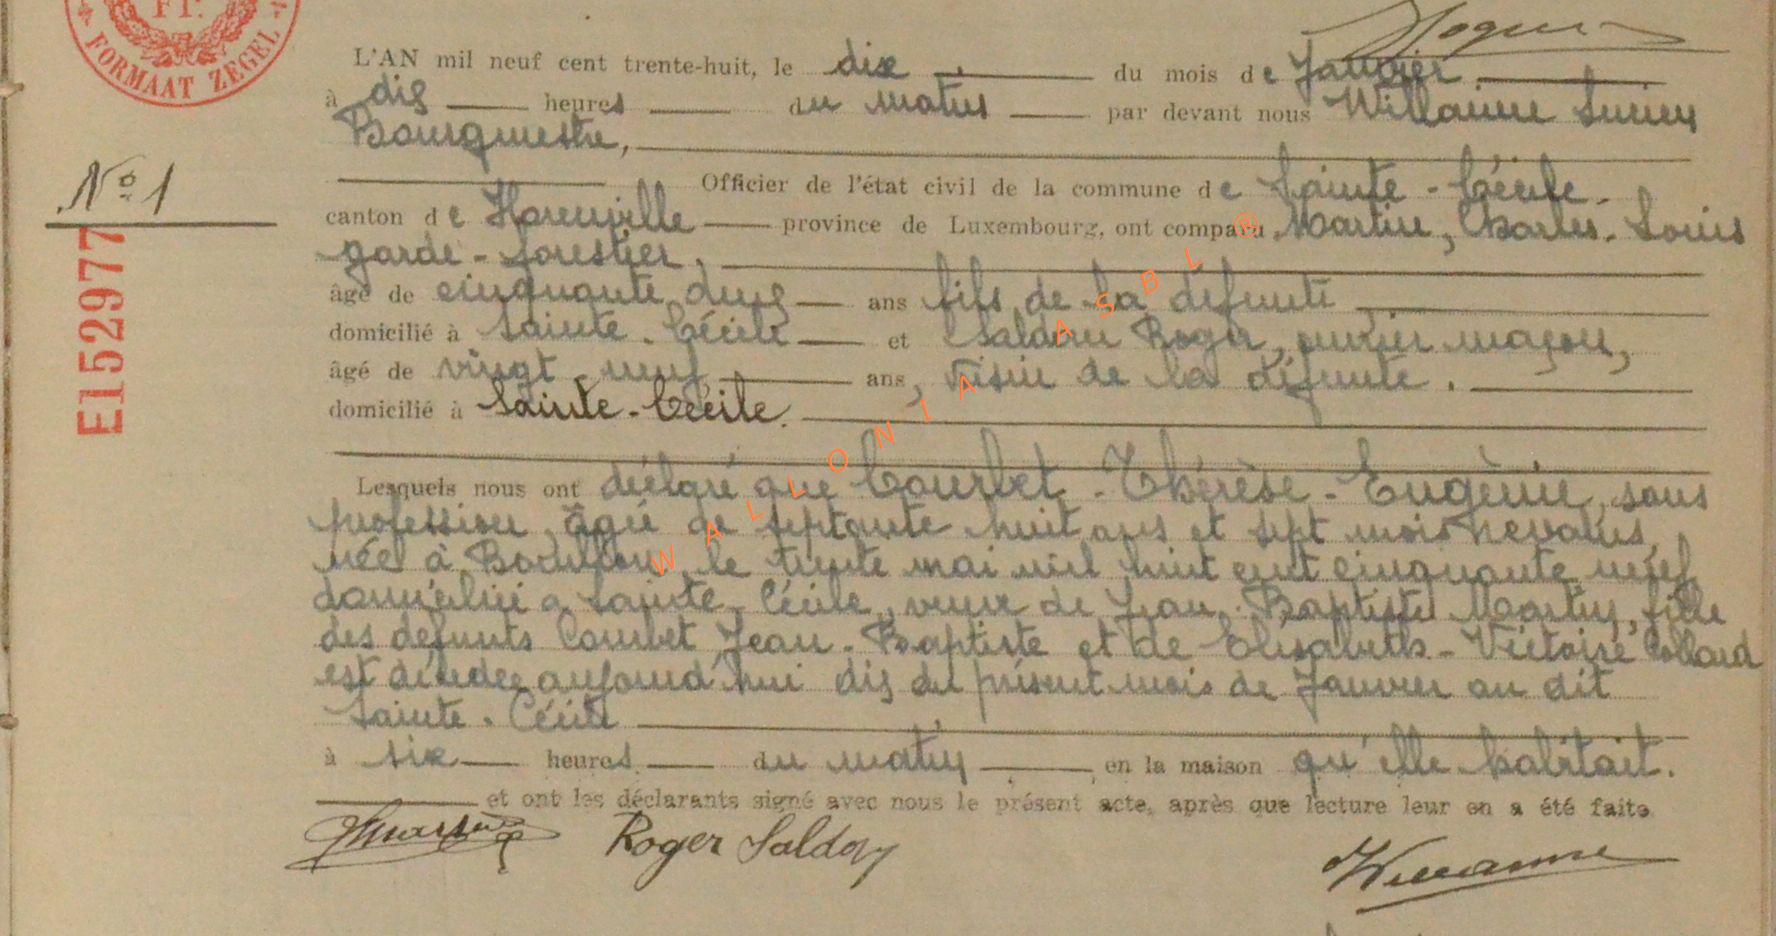 FORMAAT ZEGEL
L'AN mil neuf cent trente-huit, le dix du mois de Janvier
à dix heures du matin par devant nous Willaime Lucien
Bourgmestre,
Nº 1
Officier de l'état civil de la commune de Sainte-Cécile
canton de Florenville province de Luxembourg, ont comparu Martin, Charles-Louis
garde-forestier,
E152977
âgé de cinquante deux ans fils de la défunte
domicilié à Sainte-Cécile et Roger, ouvrier maçon,
âgé de vingt-neuf ans, voisin de la défunte.
domicilié à Sainte-Cécile.
Lesquels nous ont déclaré que Courbet-Thérèse-Eugénie, sans
profession, âgée de septante huit ans et sept mois
née à Bouillon, le trente mai mil huit cent cinquante neuf
domiciliée à Sainte-Cécile, veuve de Jean-Baptiste Martin, fille
des défunts Courbet Jean-Baptiste et de Elisabeth-Victoire Collard
est décédée aujourd'hui dix du présent mois de Janvier au dit
Sainte-Cécile
à six heures du matin en la maison qu'elle habitait.
et ont les déclarants signé avec nous le présent acte, après que lecture leur en a été faite
Roger Saldoy
WALLONIA ASBL ®